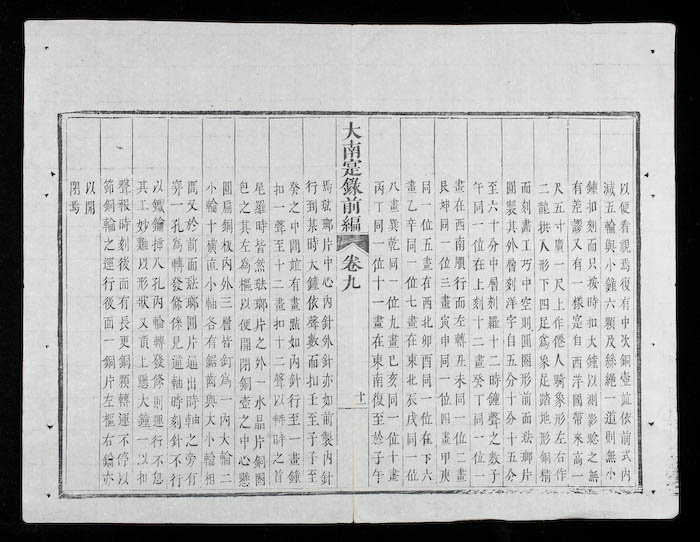 以便看視焉復有中次銅壺竝依前式內
減五輪與小鍾六顆及絲繩一道則無小
鍾扣刻而只按時扣大鍾以測影驗之無
有差謬又有一樣寔自西洋國帶來高一
尺五寸廣一尺上作倦人騎象形左右作
二龍拱入形下四足爲象足踏地形銅精
而刻畫工巧中空則圓圈形前面琺瑯片
圓製其外層刻洋字自五分十分十五分
至六十分中層刻羅十二時鍾聲之數子
午同一位在上刻十二畫癸丁同一位一
畫在西南順行而左轉丑未同一位二畫
艮坤同一位三畫寅申同一位四畫甲庚
同一位五畫在西北卯酉同一位在下六
畫乙辛同一位七畫在東北辰戌同一位
八畫巽乾同一位九畫巳亥同一位十畫
丙丁同一位十一畫在東南復至於子午
大南寔錄前編 卷九 十一
焉琺瑯片中心內針外針亦如前製內針
行到某時大鍾依聲數而扣壬至子子至
癸之中間竝有畫點如內針行至一畫鍾
扣一聲至十二畫扣十二聲以辨時之首
尾羅時皆然琺瑯片之外一水晶片銅圈
包之其左爲樞以便開閉銅壺之中心懸
圓扁銅板內外三層皆釘爲一內大輪二
小輪十橫直小軸各有鋸齒與大小輪相
函又於前面琺瑯圓片逼出時軸之旁有
穿一孔爲轉發條係見逼軸時刻針不行
以鐵鑰插入孔內輪轉發條則運行不怠
其工妙難以形狀又頂上懸大鍾一以扣
聲報時刻後面有長更銅顆轉運不停以
節銅輪之運行後面一銅片左樞右鑰亦
以開
閉焉